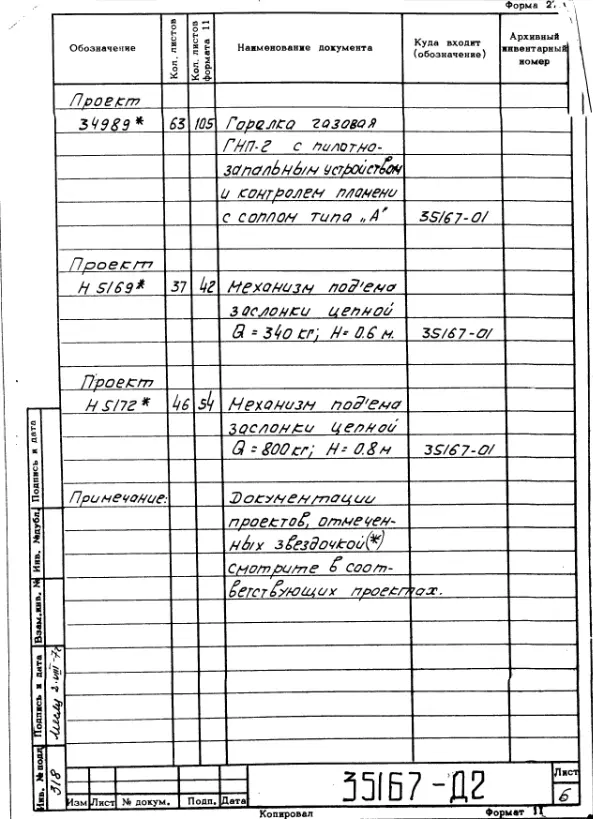 Форма 2
Обозначение
Кол. листов
Кол. листов формата 11
Наименование документа
Куда входит (обозначение)
Архивный инвентарный номер
Проект
34989* 63 105 Горелка газовая
ГНП-2 с пилотно-
запальным устройством
и контролем пламени
с соплом типа „А" 35167-01
Проект
Н 5169* 37 42 Механизм под'ема
заслонки цепной
Q = 340 кг; Н = 0.6 м. 35167-01
Проект
Н 5172* 46 54 Механизм под'ема
заслонки цепной
Q = 800 кг; Н = 0.8 м 35167-01
Примечание: Документации
проектов, отмечен-
ных звездочкой (*)
смотрите в соот-
ветствующих проектах.
Подпись и дата
Инв. № дубл.
Взам. инв. №
Подпись и дата
Инв. № подл
318
Изм Лист № докум. Подп. Дата
35167-Д2
Лист
6
Копировал
Формат 11